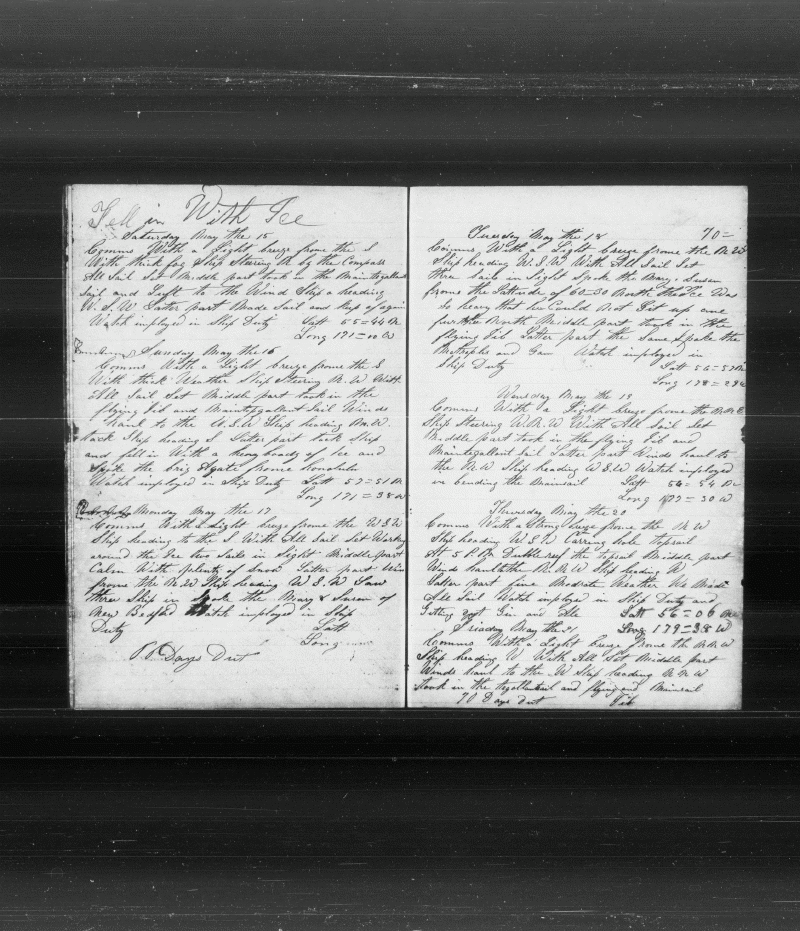 Fell in With Ice
Saturday May the 15
Comms With a Light breze frome the S
With thick fog Ship Stering N by the Compass
All Sail Set Middle part took in the Maintogallant
Sail and Luft to the Wind Ship a heading
W. S. W Latter part Made Sail and Kep of again
Watch imployed in Ship Duty Latt 55=44 N
Long 171=10 W
Sunday May the 16
Comms With a Light breze frome the S
With thick Weather Ship Stering N. W With
All Sail Set Middle part took in the
flying Jib and Maintogallant Sail Winds
haul to the W.S.W Ship heading N.W.
tack Ship heading S Later part tack Ship
and fell in With a heavy body of Ice and
Spike the brig Agate frome honolulu
Watch imployed in Ship Duty Latt 57=51 N
Long 171=38 W
Monday May the 17
Comms With a Light breze frome the W S W
Ship heading to the S With All Sail Set Working
around the Ice two Sails in Sight Middle part
Calm With plenty of Snow Latter part Win
frome the N.W Ship heading W.S.W Saw
three Ship in Spoke the Mary & Susan of
New Bedford Watch imployed in Ship
Duty Latt
Long
Days Out
70=
Tuesday May the 18
Comms With a Light breze frome the N.W
Ship heading W.S.W With All Sail Set
three sail in Sight Spoke the Mary & Susan
frome the Lattitude of 60=30 North the Ice Was
So heavy that he Could Not Git up any
further North Middle part took in the
flying Jib Latter part the Same Spoke the
and Gam Watch imployed in
Ship Duty Latt 56=57 N
Long 178=28 W
Wensday May the 19
Comms With a Light breze frome the N.N.E
Ship Stering W.N.W With All Sail Set
Middle part took in the flying Jib and
Maintogallant Sail Latter part Winds haul to
the N.W Ship heading W.S.W Watch imployed
in bending the Mainsail Latt 56=54 N
Long 177=30 W
Thursday May the 20
Comms With a Strong breze frome the N.W
Ship heading W.S.W Carring hole topsail
At 5 P.M Double reef the topsail Middle part
Winds haul to the N.N.W Ship heading W
Latter part fine Modrate Weather We Made
All Sail Watch imployed in Ship Duty and
Gitting and Latt 56=06 N
Friaday May the 21 Long 179=38 W
Comms With a Light breze frome the N.N.W
Ship heading W With All Set Middle part
Winds haul to the W Ship heading N.N.W
took in the togallantsail and flying and Mainsail
70 Days Out Jib